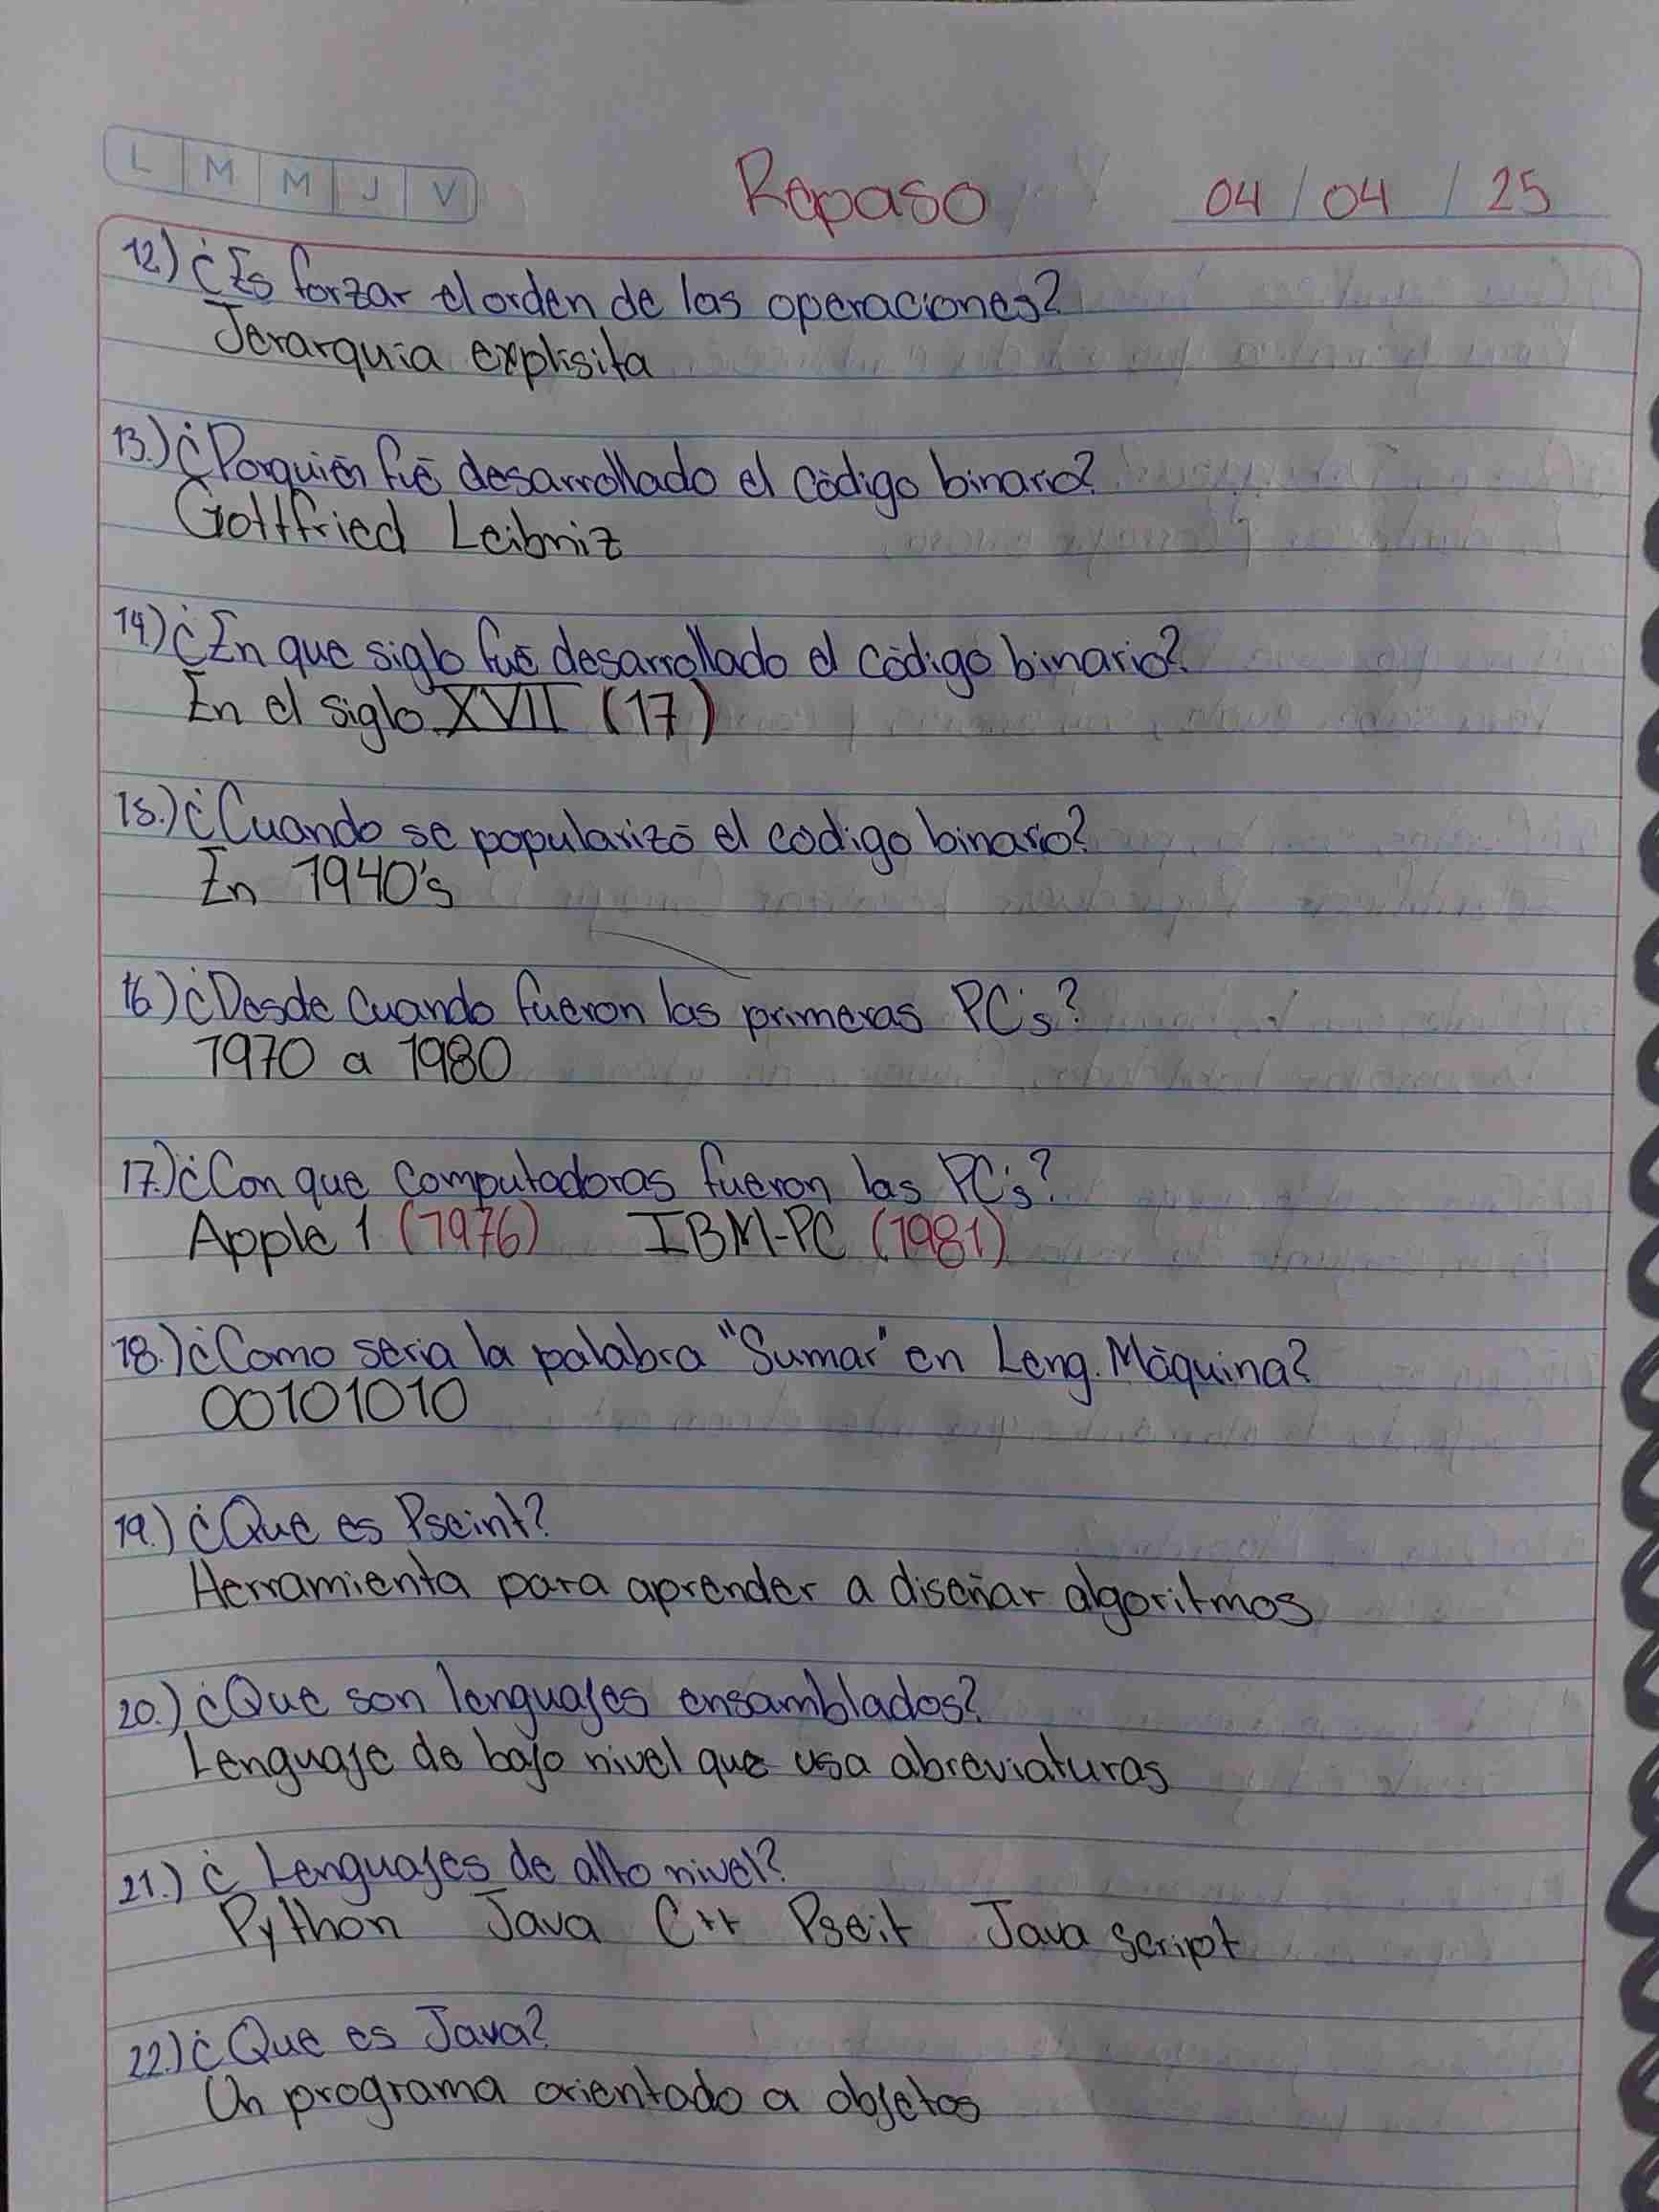 L M M J V
Repaso 04 / 04 / 25
12) ¿Es forzar el orden de las operaciones?
Jerarquia explisita
13.) ¿Porquién fué desarrollado el código binario?
Gottfried Leibniz
14) ¿En que siglo fué desarrollado el código binario?
En el siglo XVII (17)
15.) ¿Cuando se popularizó el codigo binario?
En 1940's
16) ¿Desde Cuando fueron las primeras PC's?
1970 a 1980
17.) ¿Con que Computadoras fueron las PC's?
Apple 1 (1976) IBM-PC (1981)
18.) ¿Como seria la palabra "Sumar" en Leng. Máquina?
00101010
19.) ¿Que es Pseint?
Herramienta para aprender a diseñar algoritmos
20.) ¿Que son lenguajes ensamblados?
Lenguaje de bajo nivel que usa abreviaturas
21.) ¿ Lenguajes de alto nivel?
Python Java C++ Pseit Java script
22.) ¿Que es Java?
Un programa orientado a objetos